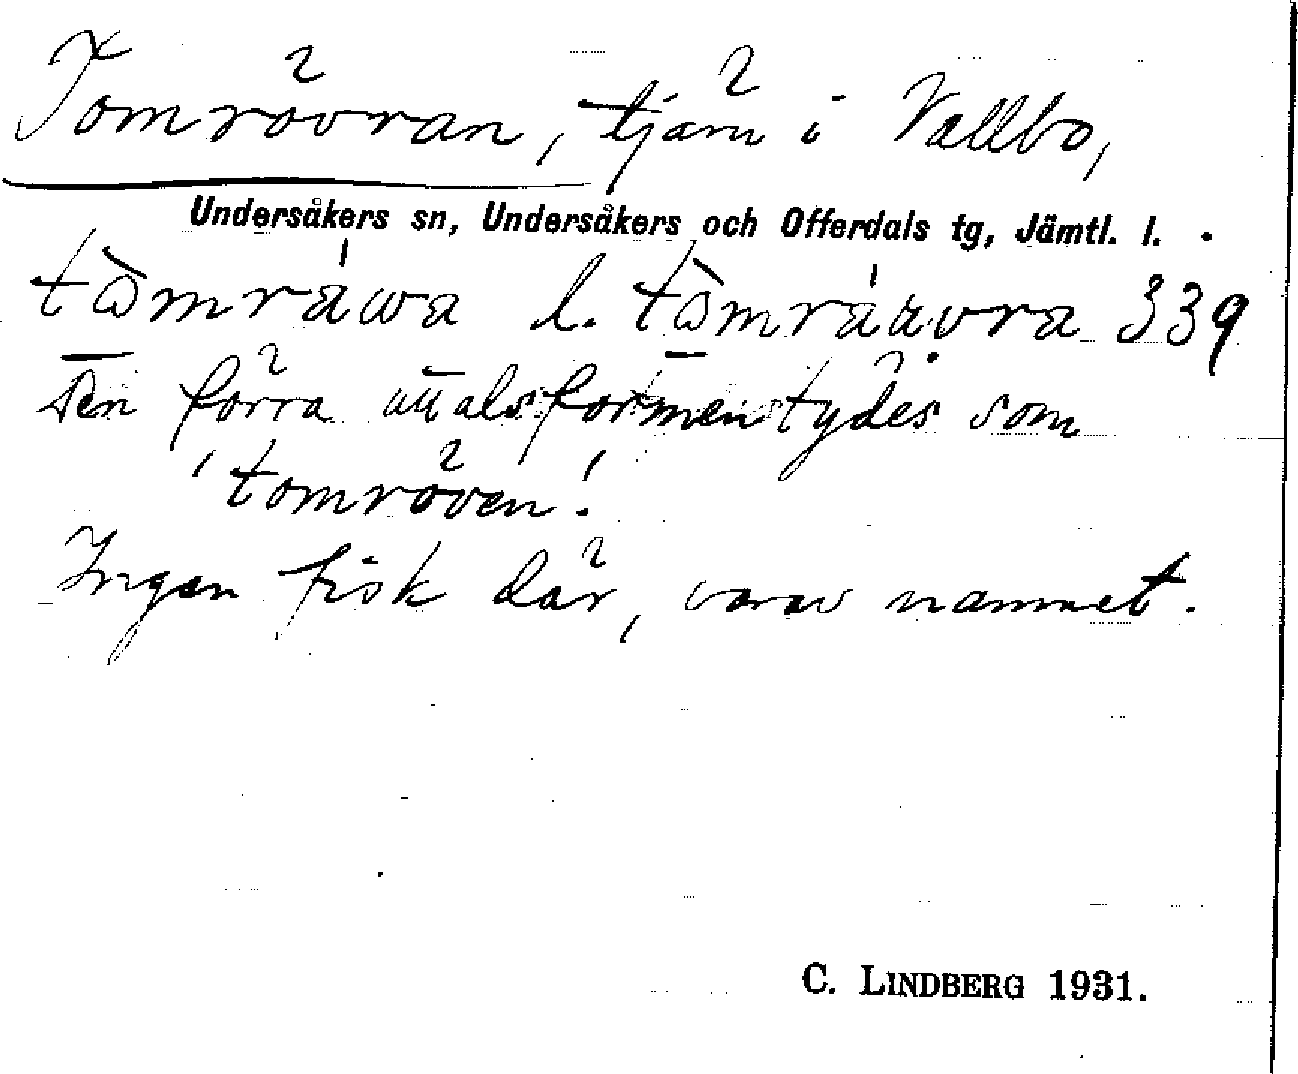 Tomrövran, tjärn i Vallbo,
Undersåkers sn, Undersåkers och Offerdals tg, Jämtl. l.
tòmráwa l. tòmrávra 339
Den förra uttalsformen tydes som
'tomröven'.
Ingen fisk där, varav namnet.
C. LINDBERG 1931.